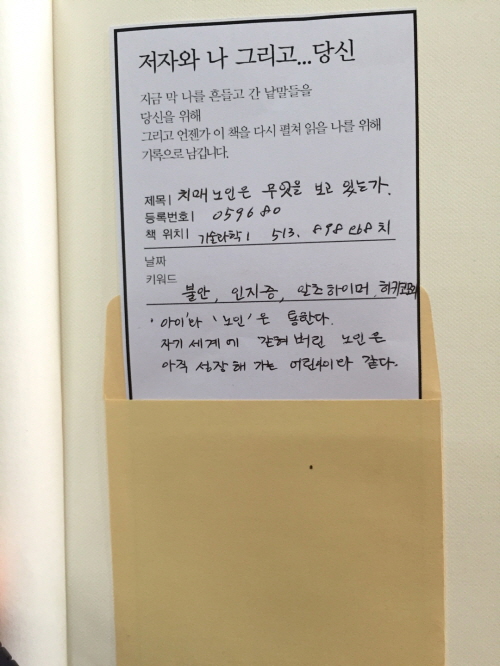 저자와 나 그리고...당신
지금 막 나를 흔들고 간 낱말들을
당신을 위해
그리고 언젠가 이 책을 다시 펼쳐 읽을 나를 위해
기록으로 남깁니다.
제목| 치매노인은 무엇을 보고 있는가.
등록번호| 059680
책 위치| 기술과학1 513. 898 엔68치
날짜
키워드 불안, 인지증, 알츠하이머, 히키코모리
'아이'와 '노인'은 통한다.
자기 세계에 갇혀버린 노인은
아직 성장해 가는 어린이와 같다.